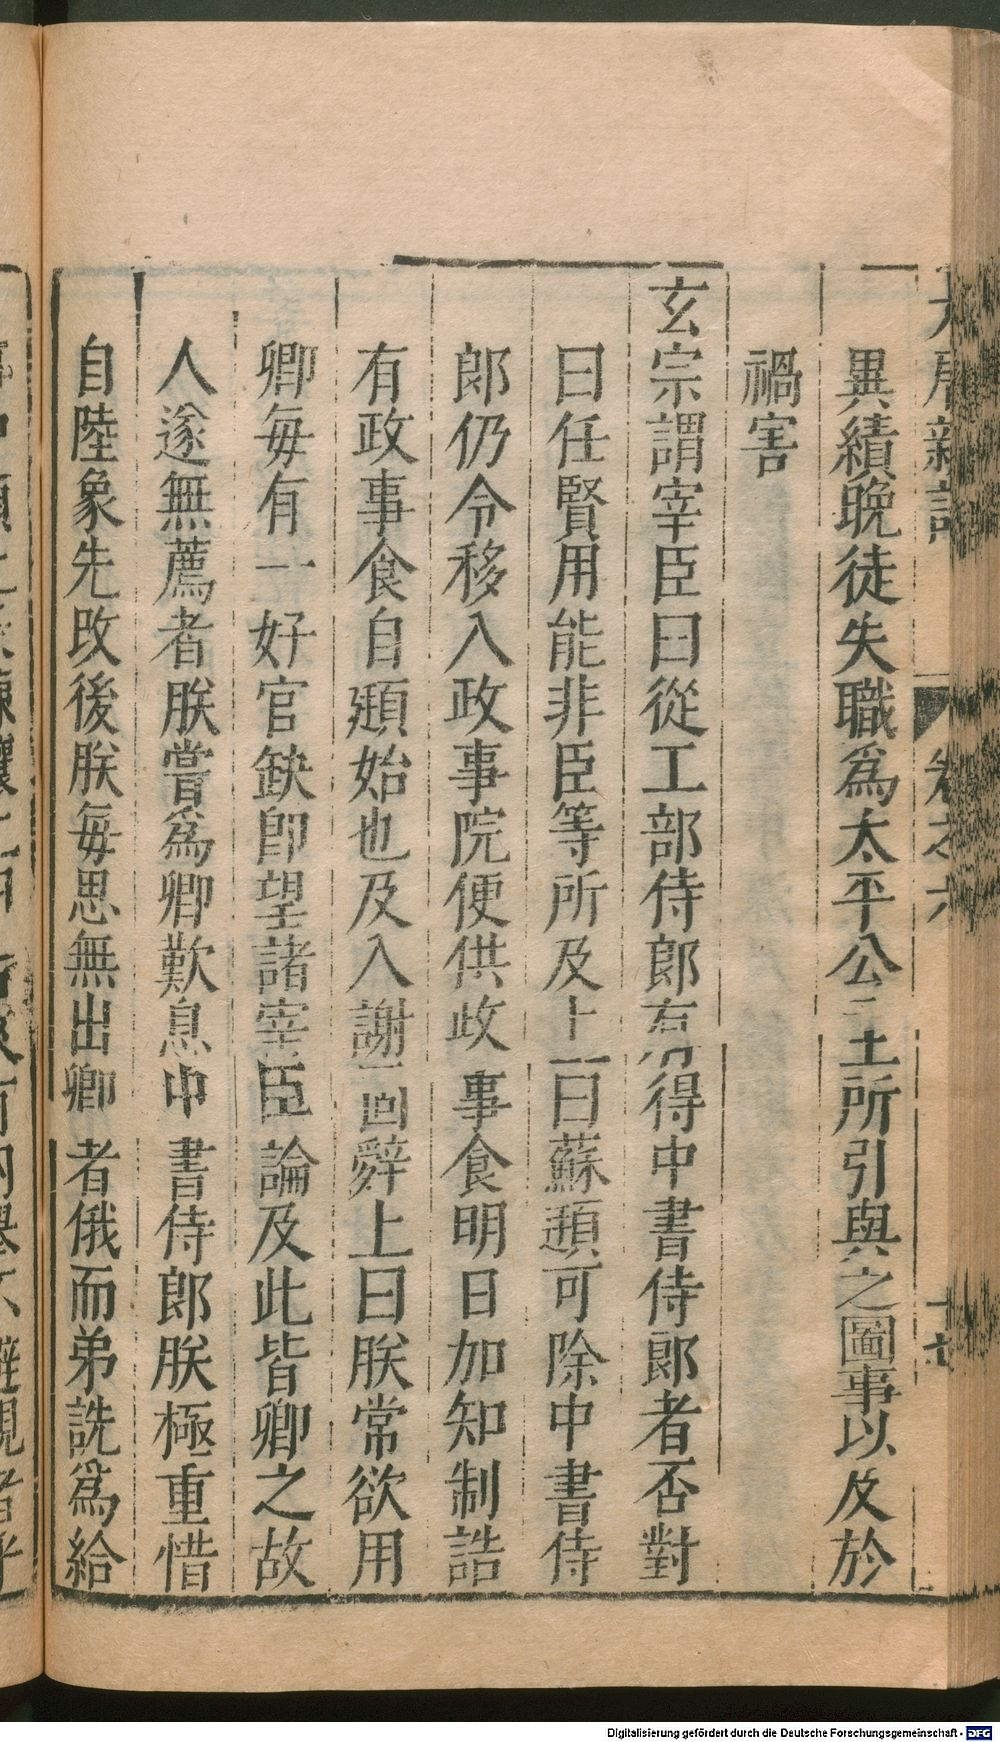 異績晚徒失職爲太平公主所引與之圖事以及於
禍害
玄宗謂宰臣曰從工部侍郎有得中書侍郎者否對
曰任賢用能非臣等所及上曰蘇頲可除中書侍
郎仍令移入政事院便供政事食明日加知制誥
有政事食自頲始也及入謝固辭上曰朕常欲用
卿每有一好官缺即望諸宰臣論及此皆卿之故
人遂無薦者朕嘗爲卿歎息中書侍郎朕極重惜
自陸象先改後朕每思無出卿者俄而弟詵爲給
Digitalisierung gefördert durch die Deutsche Forschungsgemeinschaft - DFG